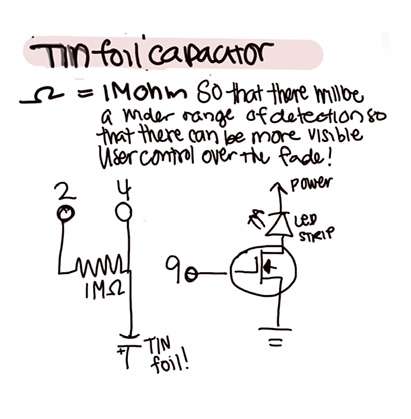 TIN foil capacator
Ω = 1Mohm so that there will be
a wider range of detection so
that there can be more visible
user control over the fade!
2 4
power
LED
STRIP
9
1MΩ
+
TIN
foil!